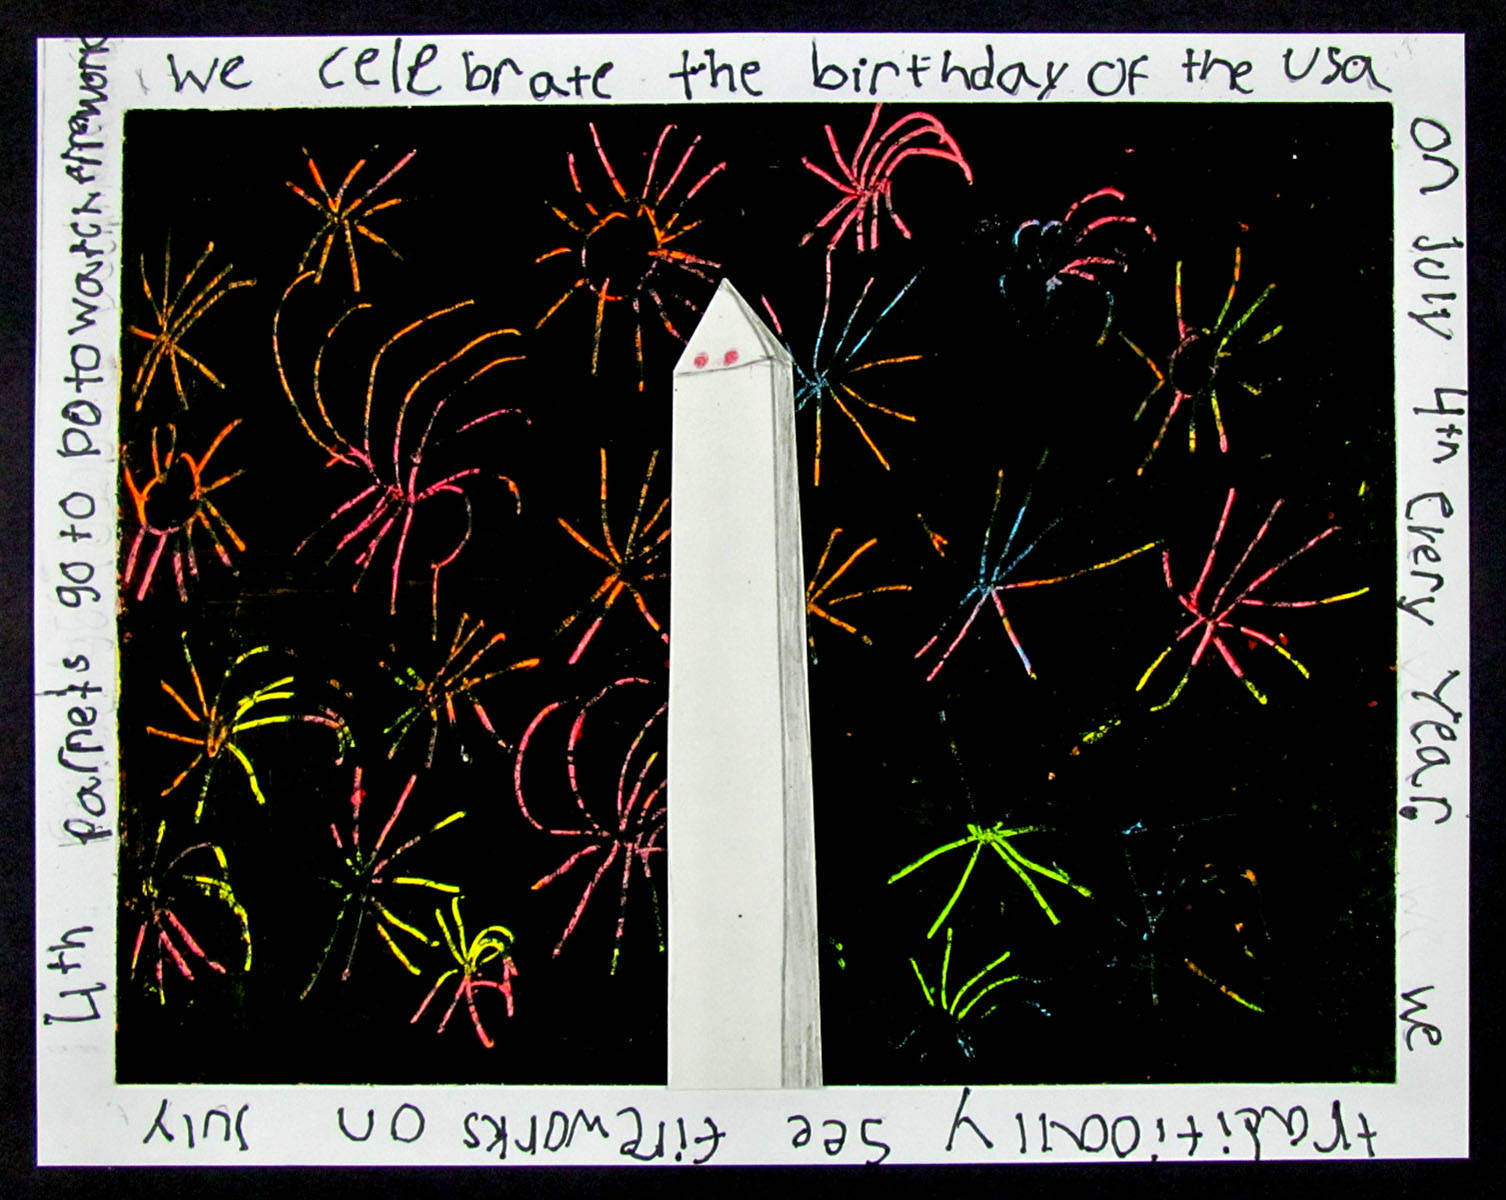 we celebrate the birthday of the usa
on July 4th Every Year, we
traditiionally see fireworks on July
4th parnets go to po to watch firework